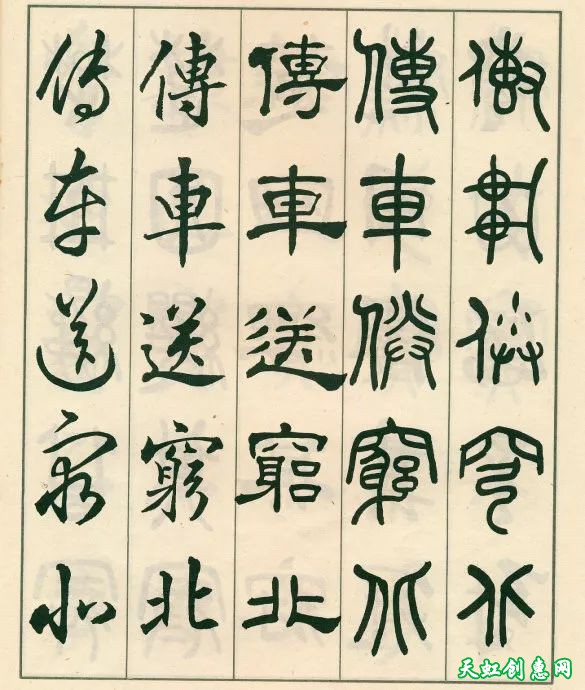 傳車送窮北
傳車送窮北
傳車送窮北
傳車送窮北
傳車送窮北
天虹创惠网